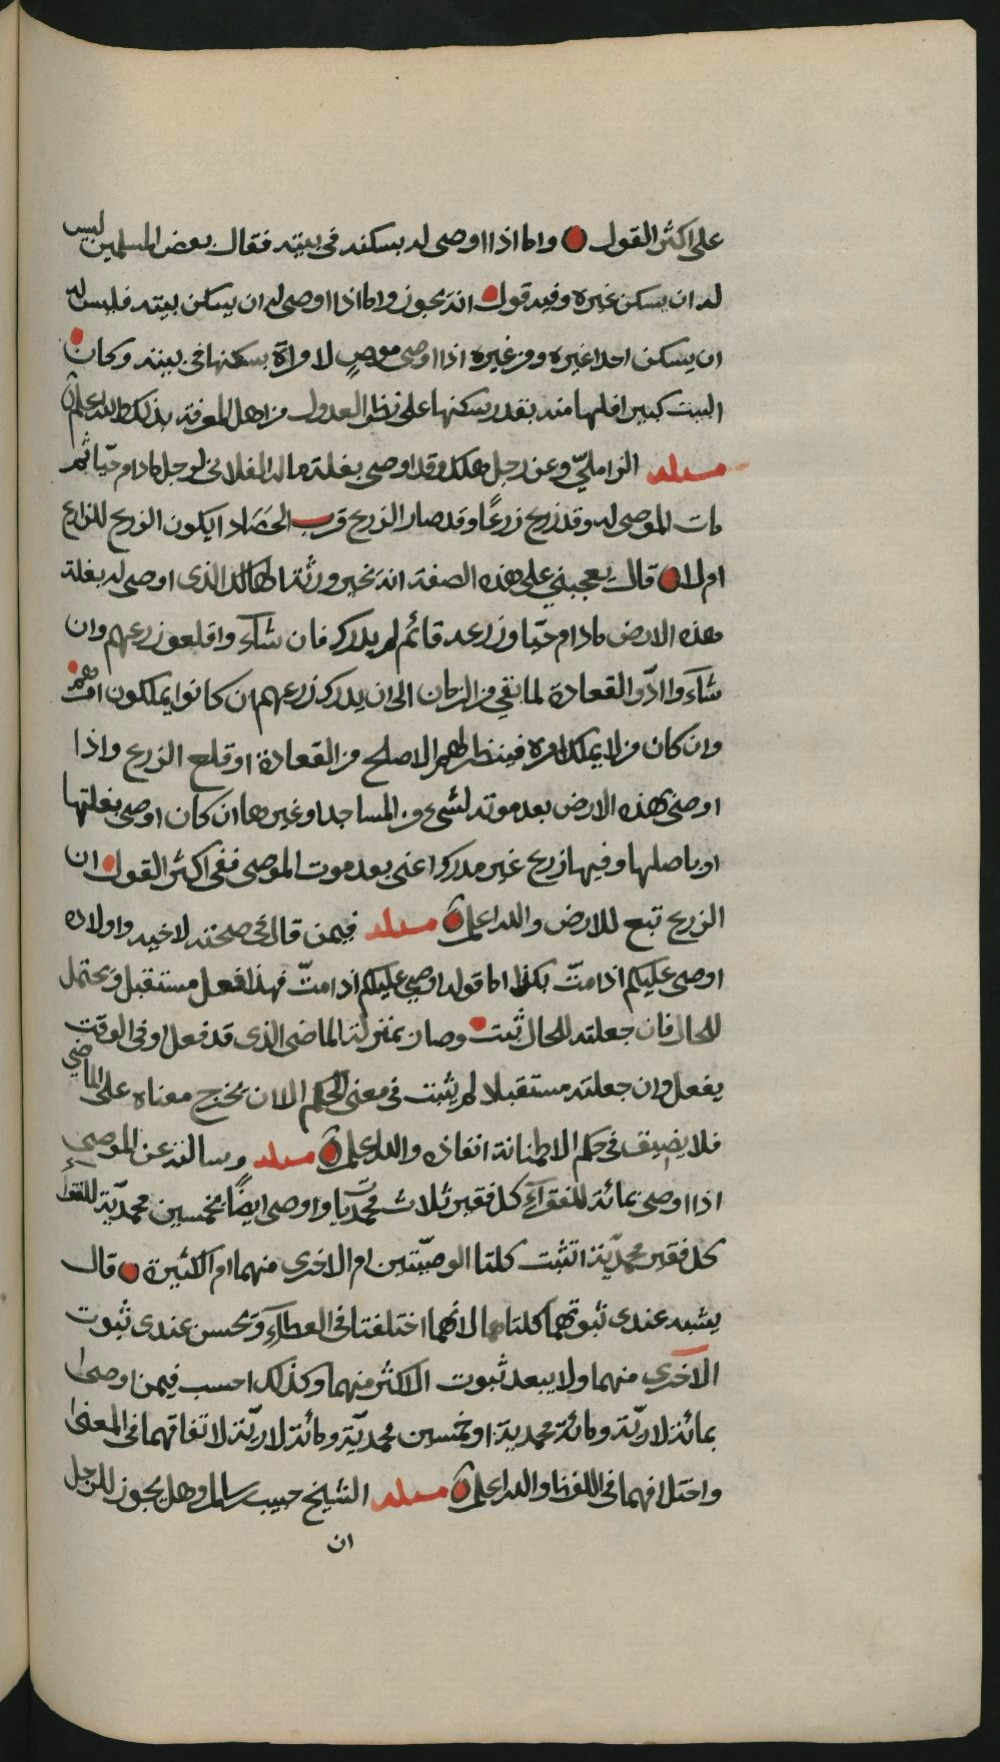 على اكثر القول واما اذا اوصى له بسكنه في بيته فقال بعض المسلمين ليس
له ان يسكن غيره وفيه قول انه يجوز واما اذا اوصى له ان يسكن بيته فليس له
ان يسكن احدا غيره ومن غيره اذا اوصى موصٍ لامراة بسكنها في بيته وكان
البيت كبير افلها منه بقدر سكنها على نظر العدول من اهل المعرفة بذلك والله اعلم
مسئلة الزاملي وعن رجل هلك وقد اوصى بغلة ماله الفلاني لرجل مادام حيّا ثم
مات الموصى له وقد زرع زرعًا وقد صار الزرع قرب الحَصَاد ايكون الزرع للزارع
ام لا قال يعجبني على هذه الصفة انه تخير ورثة الهالك الذي اوصى له بغلة
هذه الارض مادام حيّا وزرعه قائم لم يدرك فان شآء واقلعو زرعهم وان
شآء وا ادّوا القعادة لما بقي من الزمان الى ان يدرك زرعهم ان كانوا يملكون امرهم
وان كان من لا يملك امره فينظر لهم الاصلح من القعادة او قلع الزرع واذا
اوصى بهذه الارض بعد موته لشيء من المساجد او غيرها ان كان اوصى بغلتها
او باصلها وفيها زرع غير مدرك اعني بعد موت الموصي ففي اكثر القول ان
الزرع تبع للارض والله اعلم مسئلة فيمن قال في صحته لاخيه واولاده
اوصى عليكم اذا متّ بكذا اما قوله اوصي عليكم اذا متّ فهذا فعل مستقبل ويحتمل
للحال فان جعلته للحال ثبت وصار بمنزلة الماضي الذي قد فعل او في الوقت
يفعل وان جعلته مستقبلا لم يثبت في معنى الحكم الا ان يخرج معناه على الماضي
فلا يضيق في حكم الاطمئانة انفاذه والله اعلم مسئلة وسالته عن الموصي
اذا اوصى بمائة للفقرآء كل فقير ثلاث محمديّات واوصى ايضًا بخمسين محمديّة للفقراء
كل فقير محمديّة اتثبت كلتا الوصيّتين ام الاخرى منهما ام الكثيرة قال
يشبه عندي ثبوتهما كلتاهما لانهما اختلفتا في العطآء ويحسن عندي ثبوت
الاخرى منهما ولا يبعد ثبوت الاكثر منهما وكذلك احسب فيمن اوصى
بمائة لاريّة ومائة محمدية او خمسين محمديّة ومائة لاريّة لاتفاقهما في المعنى
واختلافهما في اللفظ والله اعلم مسئلة الشيخ حبيب بن سالم وهل يجوز للرجل
ان